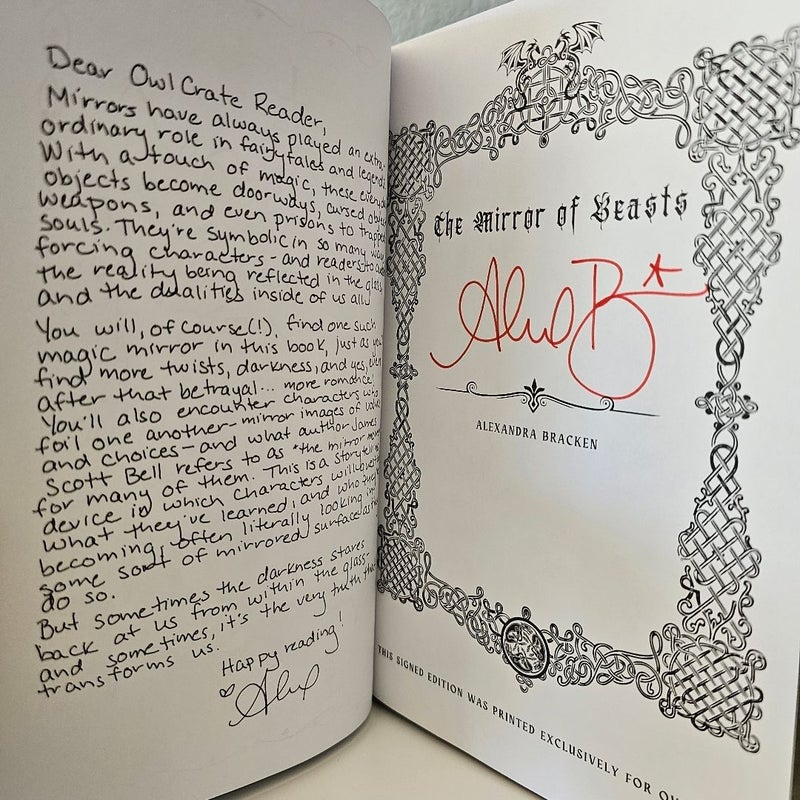 Dear OwlCrate Reader,
Mirrors have always played an extra-
ordinary role in fairytales and legends
With a touch of magic, these
objects become doorways, cursed
weapons, and even prisons to
souls. They're symbolic in so many
forcing characters - and readers - to
the reality being reflected in the glass
and the dualities inside of us all
You will, of course(!), find one such
magic mirror in this book, just as
find more twists, darkness, and yes, even
after that betrayal... more romance
You'll also encounter characters who
foil one another - mirror images of
and choices - and what author James
Scott Bell refers to as "the mirror
for many of them. This is a storytelling
device in which characters will
what they've learned, and who
becoming, often literally looking in
some sort of mirrored surface as
do so.
But sometimes the darkness stares
back at us from within the glass-
and sometimes, it's the very truth that
transforms us.
Happy reading!
♡ Alex
The Mirror of Beasts
ALEXANDRA BRACKEN
THIS SIGNED EDITION WAS PRINTED EXCLUSIVELY FOR